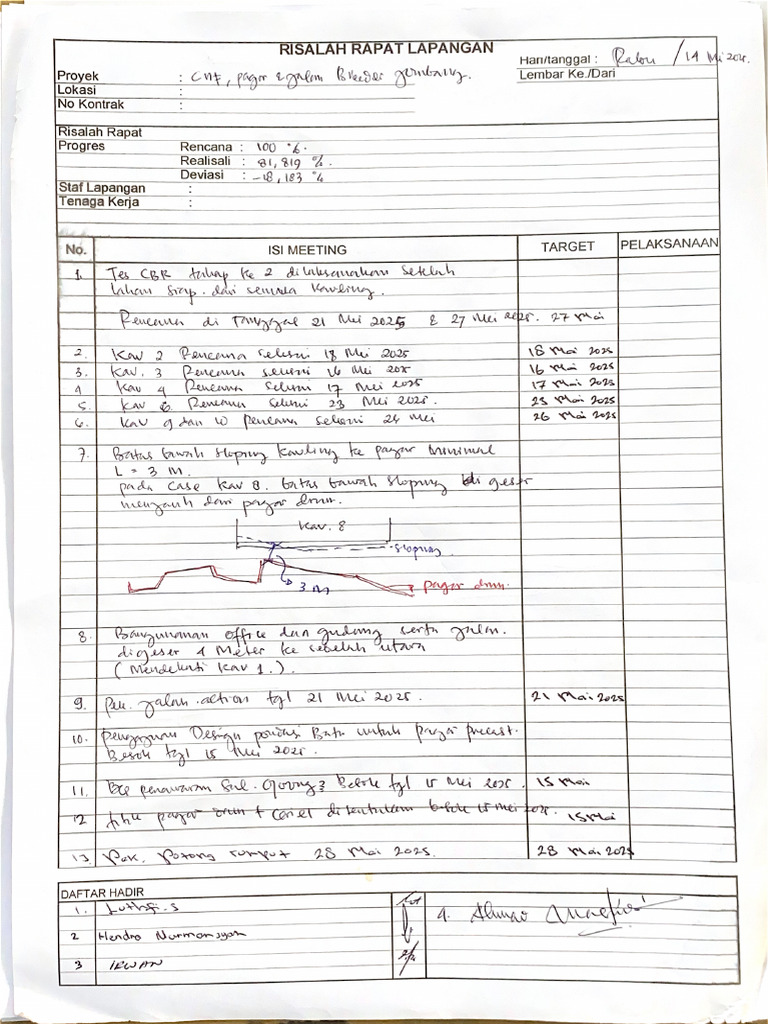 RISALAH RAPAT LAPANGAN
Hari/tanggal : Rabu / 14 Mei 2025.
Proyek : CUF, pagar & jalan Breeder Jembang.
Lembar Ke./Dari
Lokasi :
No Kontrak :
Risalah Rapat
Progres Rencana : 100 %.
Realisali : 81,819 %.
Deviasi : -18,183 %
Staf Lapangan :
Tenaga Kerja :
No. ISI MEETING TARGET PELAKSANAAN
1. Tes CBR tahap ke 2 dilaksanakan setelah
lahan siap. dari semua kavling.
Rencana di Tanggal 21 Mei 2025 & 27 Mei 2025. 27 Mei
2. Kav 2 Rencana selesai 18 Mei 2025 18 Mei 2025
3. Kav. 3 Rencana selesai 16 Mei 2025 16 Mei 2025
4 Kav 4 Rencana selesai 17 Mei 2025 17 Mei 2025
5. Kav 8. Rencana selesai 23 Mei 2025. 23 Mei 2025
6. Kav 9 dan 10 Rencana selesai 26 Mei 26 Mei 2025
7. Batas bawah sloping kavling ke pagar minimal
L = 3 M.
pada case Kav 8. batas bawah sloping di geser
menjauh dari pagar drum.
Kav. 8
sloping
3 M
pagar drum.
8. Bangunanan office dan gudang serta jalan.
digeser 4 Meter ke sebelah utara
(Mendekati Kav 1.)
9. Pek. jalan action tgl 21 Mei 2025. 21 Mei 2025
10. pengajuan Design pondasi Batu untuk pagar precast.
Besok tgl 15 Mei 2025.
11. penawaran Sal. Besok tgl 15 Mei 2025. 15 Mei
12 titik pagar drum + di tentukan besok 15 mei 2025. 15 Mei
13. Pek. Potong rumput 28 Mei 2025. 28 Mei 2025
DAFTAR HADIR
1. Luthfi.S
4. Ahmad
2 Hendro Nurmansyah
3 IRWAN